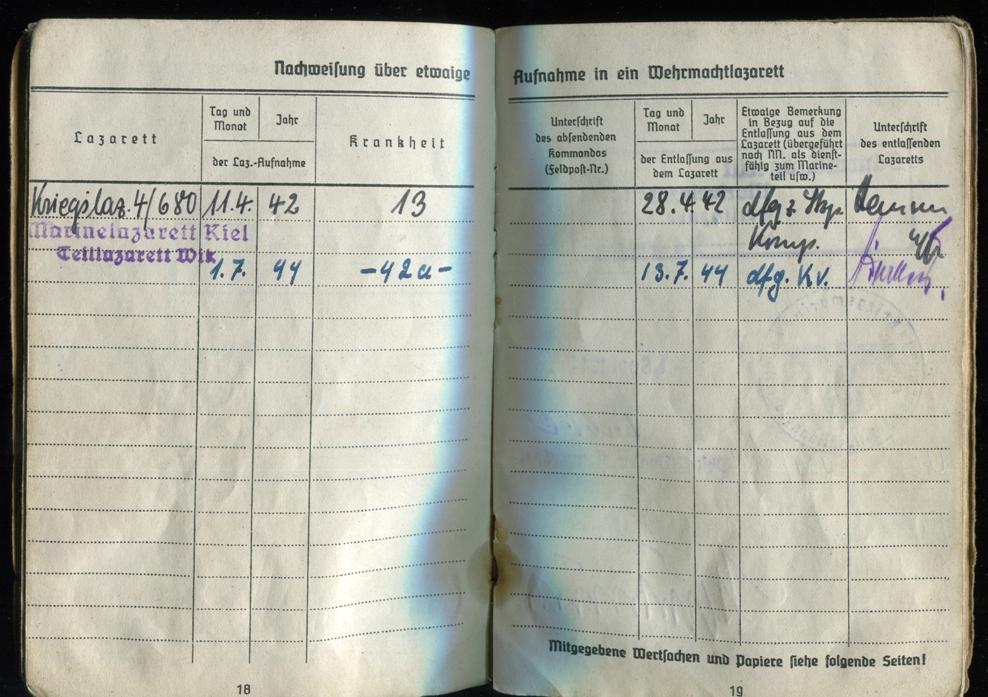 Nachweisung über etwaige Aufnahme in ein Wehrmachtlazarett
Lazarett
Tag und Monat
Jahr
der Laz.-Aufnahme
Krankheit
Unterschrift
des absendenden
Kommandos
(Feldpost-Nr.)
Tag und Monat
Jahr
der Entlassung aus
dem Lazarett
Etwaige Bemerkung
in Bezug auf die
Entlassung aus dem
Lazarett (übergeführt
nach NN. als dienst-
fähig zum Marine-
teil usw.)
Unterschrift
des entlassenden
Lazaretts
Kriegslaz. 4/680 11.4. 42 13 28.4. 42 dfg z
Komp.
Marinelazarett Kiel
Teillazarett Wik
1.7. 44 -42a- 13.7. 44 dfg. Kv.
Mitgegebene Wertsachen und Papiere siehe folgende Seiten!
18
19